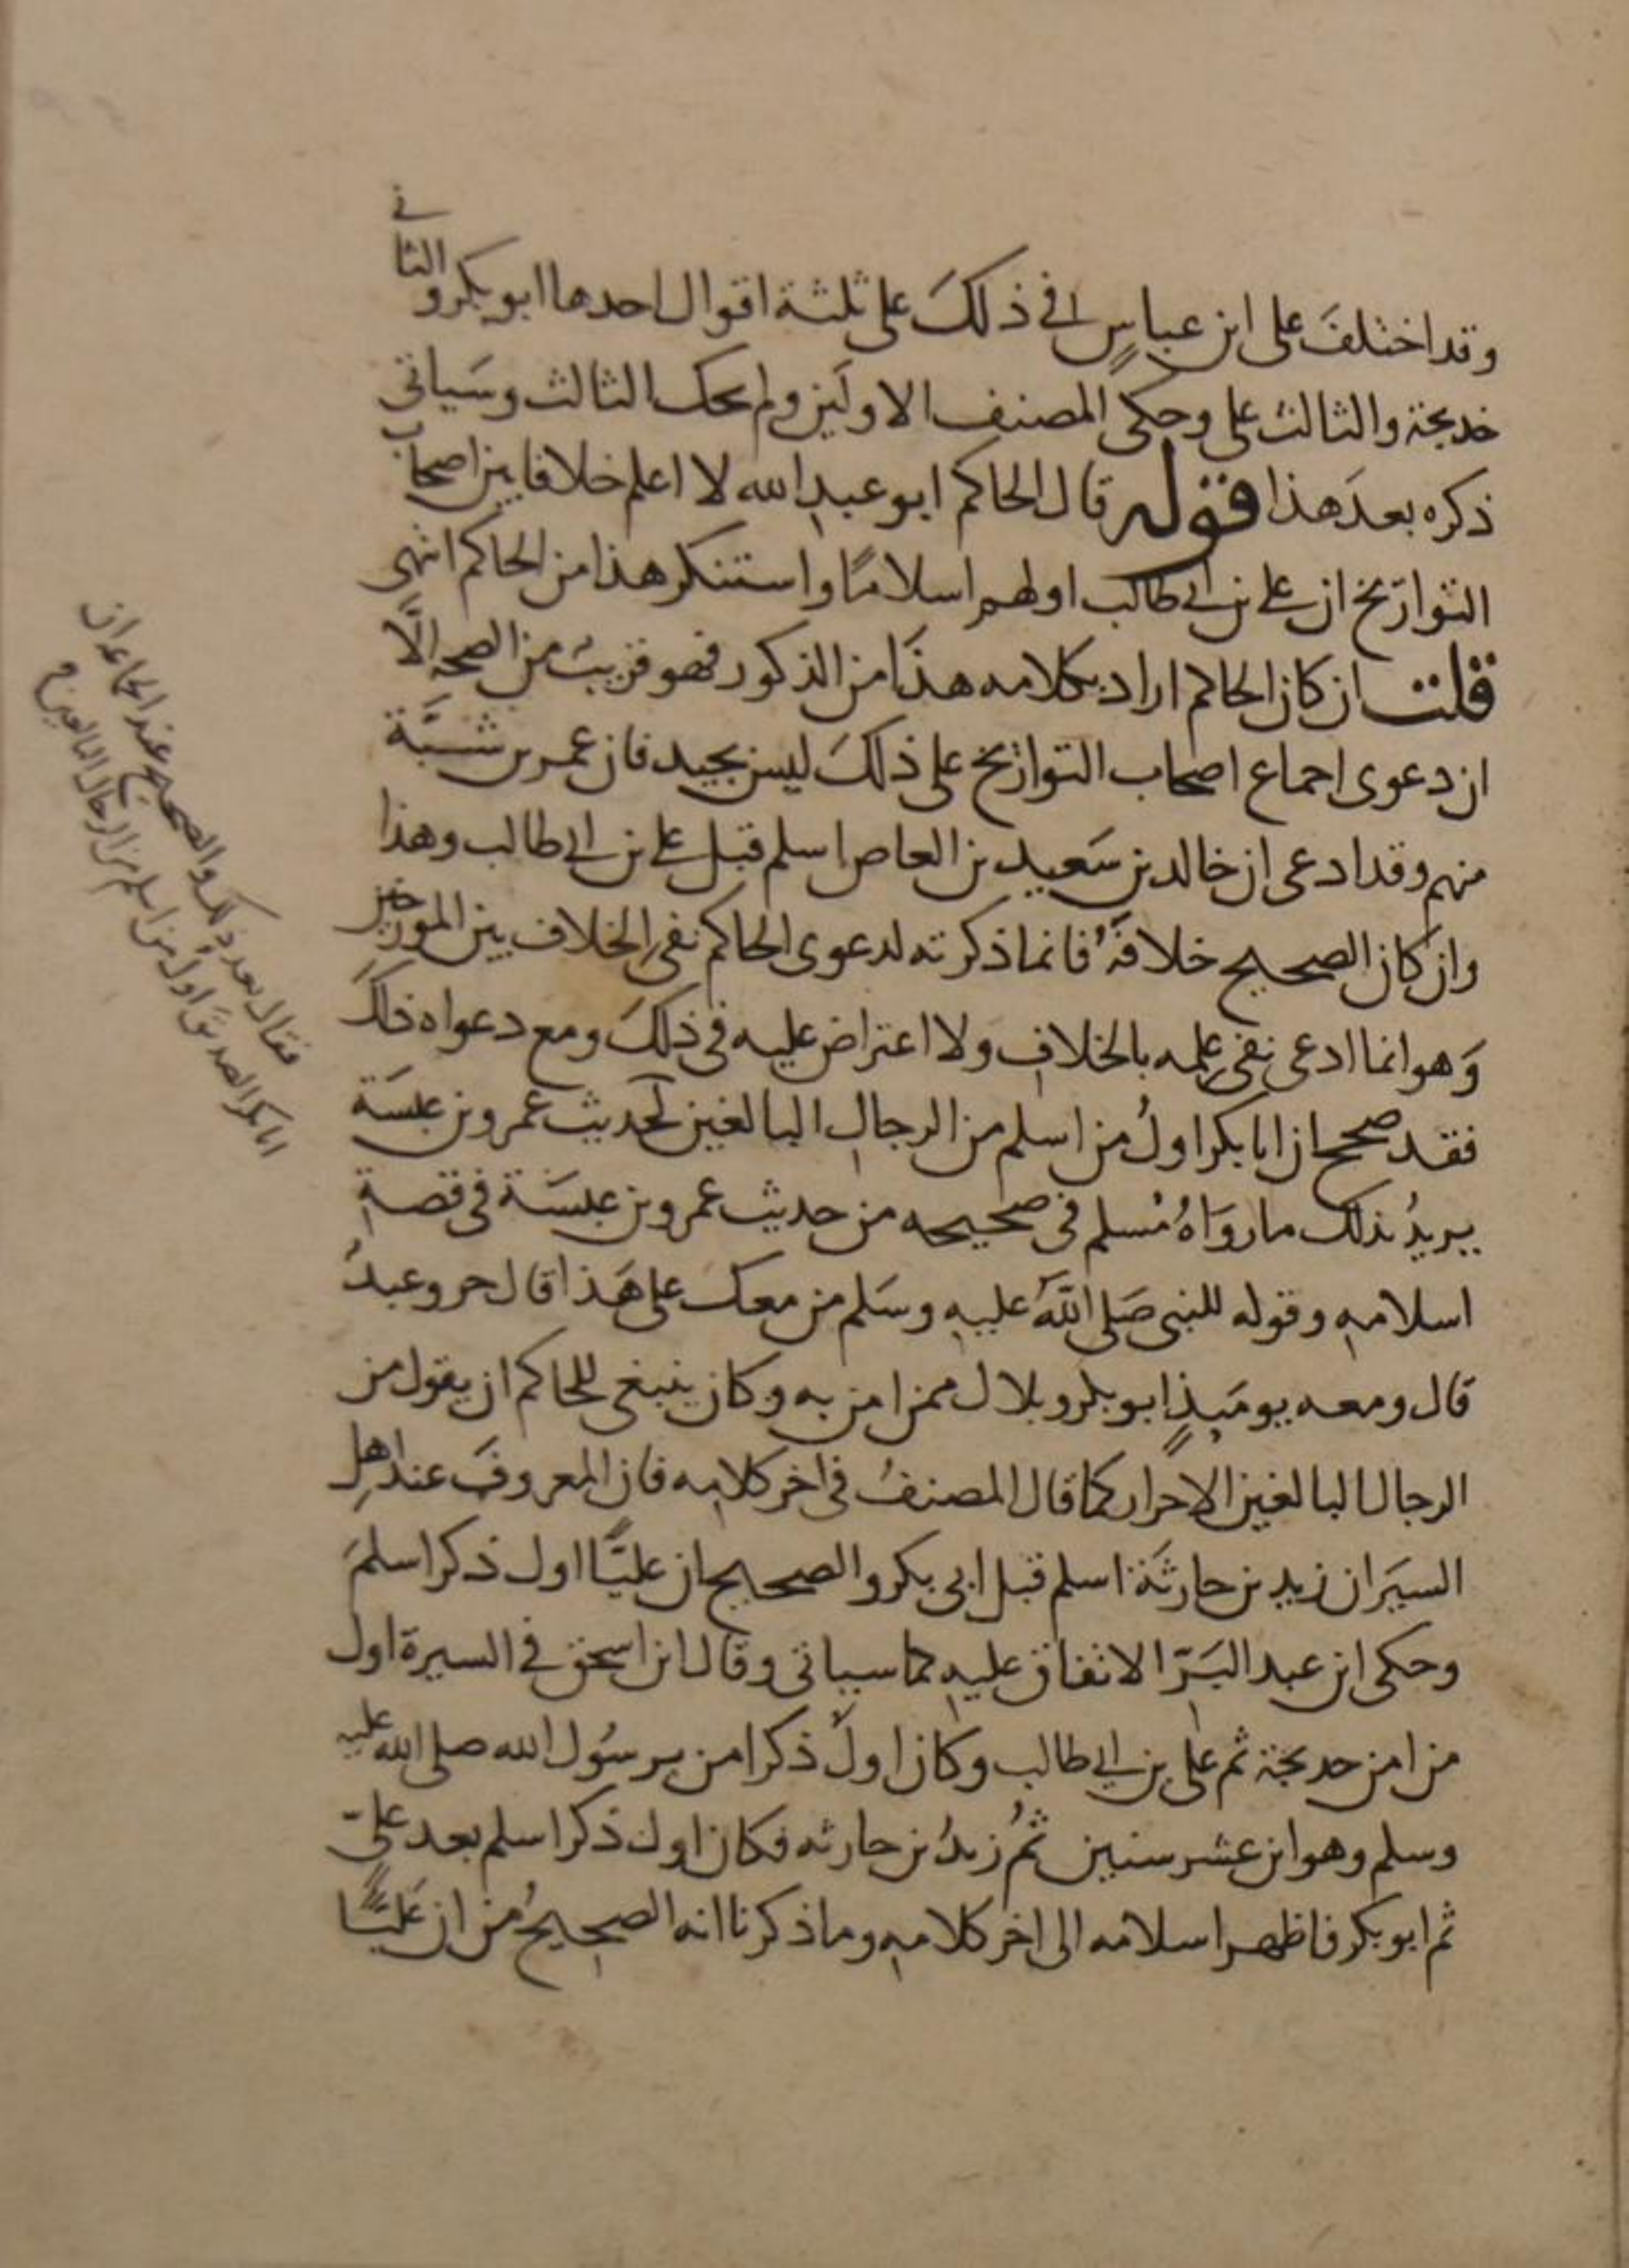 وقد اختلفَ على ابن عباسٍ في ذلكَ على ثلثة اقوال احدها ابو بكر والثاني
خديجة والثالث على وحكى المصنف الاولَين ولم يحك الثالث وسَياتى
ذكره بعدَ هذا قوله قال الحاكم ابو عبدِ الله لا اعلم خلافا بين اصحاب
التوارَيخ ان على بن ابي طالب اولهم اسلامًا واستنكر هذا من الحاكم انتهى
قلت ان كان الحاكم اراد بكلامه هذَا من الذكور فهو قريبٌ من الصحةِ الَّا
ان دعوى اجماع اصحاب التواريخ على ذلكَ ليس بجيد فان عمر بن شَبَّة
منهم وقد ادعى ان خالد بن سَعيد بن العاص اسلم قبل على بن ابي طالب وهذا
وان كان الصحيح خلافَهُ فانما ذكرته لدعوى الحاكم نفى الخلاف بين المورخين
وَهو انما ادعى نفى علمه بالخلافِ ولا اعتراض عليه فى ذلكَ ومع دعواه ذلكَ
فقد صحح ان ابا بكر اولُ من اسلم من الرجالِ البالغين لحديث عمرو بن عبسَة
يريدُ بذلك ما روَاهُ مُسلم فى صحيحه من حديث عمرو بن عبسَة فى قصةِ
اسلامهِ وقوله للنبى صَلى اللهُ عليهِ وسَلم من معك على هَذا قال حر وعبدٌ
قال ومعه يومَيذٍ ابو بكر وبلال ممن امن به وكان ينبغى للحاكم ان يقول من
الرجال البالغين الاحرار كما قال المصنفُ فى اخر كلامِه فان المعروفَ عند اهلِ
السيَر ان زيد بن حارثَة اسلم قبل ابى بكر والصحيح ان عليًّا اول ذكر اسلمَ
وحكى ابن عبد البَرّ الاتفاق عليهِ كما سياتى وقال ابن اسحق في السيرة اول
من امن خديجة ثم على بن ابي طالب وكان اولَ ذكر امن برسُول الله صلى الله عليه
وسلم وهو ابن عشر سنين ثمُ زيدُ بن حارثه فكان اول ذكر اسلم بعد علىّ
ثم ابو بكر فاظهر اسلامه الى اخر كلامهِ وما ذكرنا انه الصحيحُ من ان عَليًّا
فقال بعد ذلك والصحيح عند الجماعة ان
ابا بكر الصديق اول من اسلم من الرجال البالغين